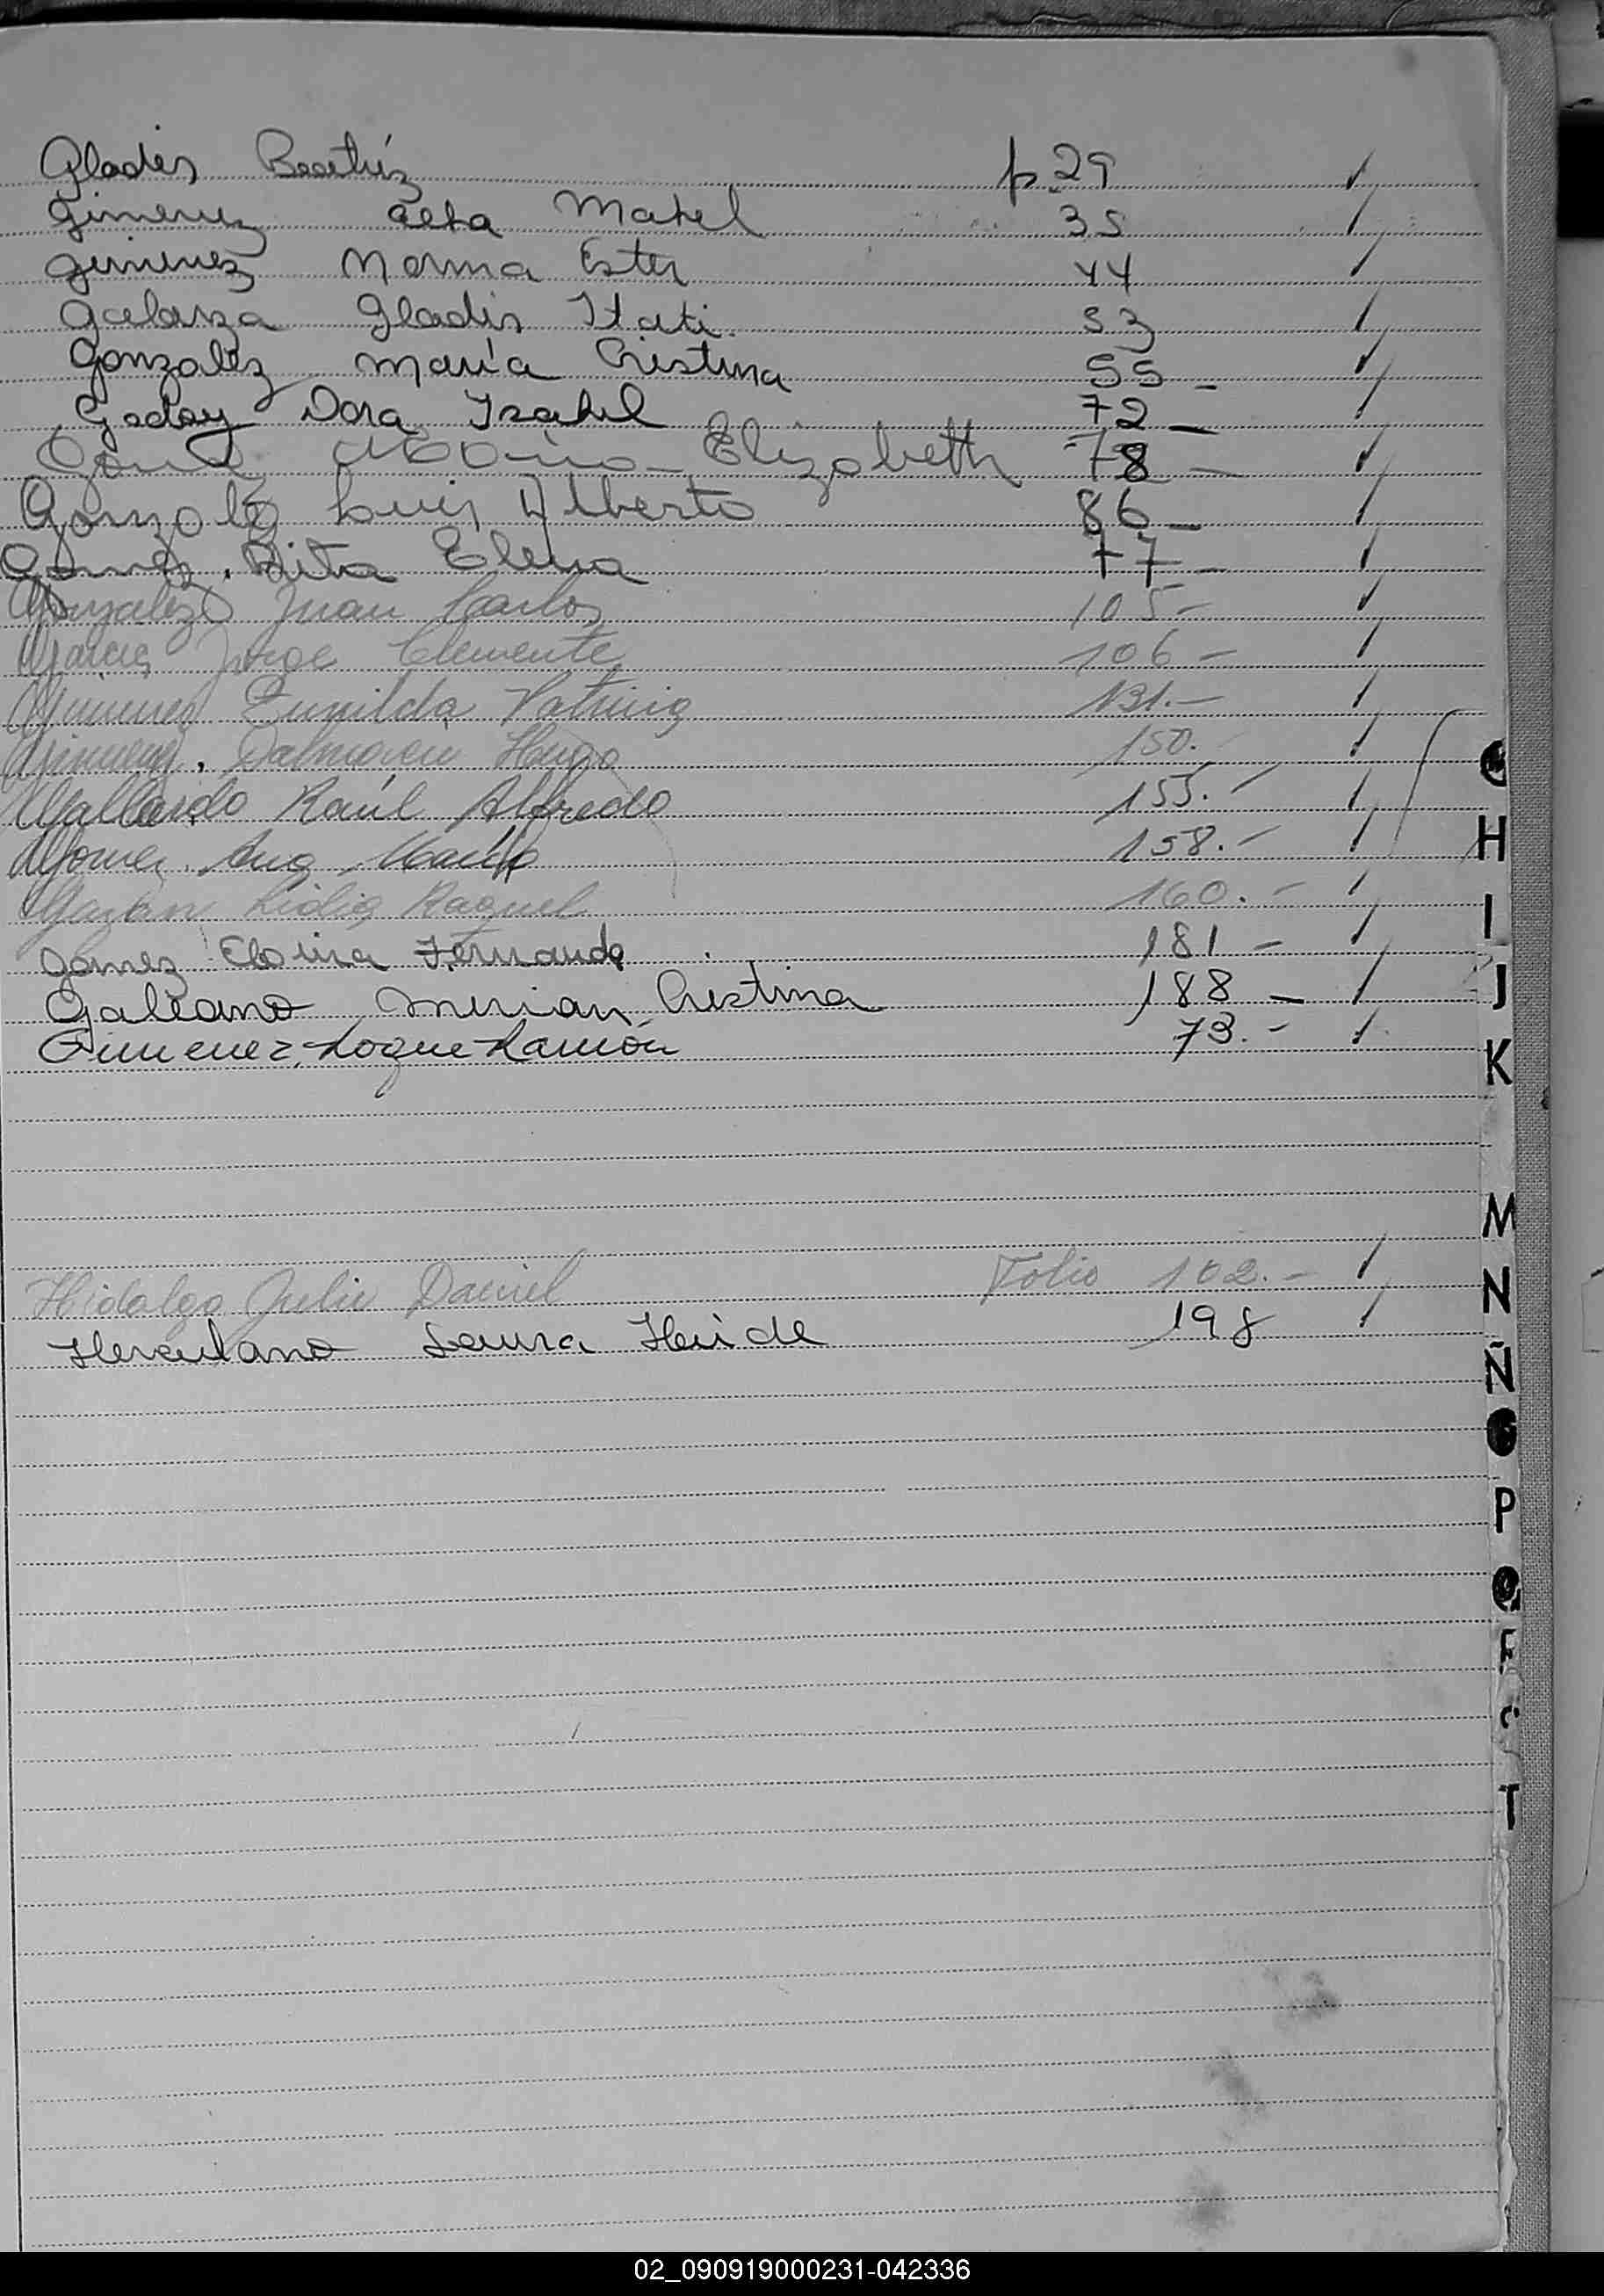 Gladis Beatríz p. 29
Gimenez Celia Mabel 35
Gimenez Norma Ester 44
Galarza Gladis Itati 53
Gonzalez María Cristina 55 -
Godoy Dora Isabel 72 -
Elizabeth 78 -
Gonzalez Luis Alberto 86 -
Gomez. Rita Elena 77 -
Gonzalez Juan Carlos 105 -
Garcia Jorge Clemente 106 -
Gimenez Eunilda Patricia 131. -
Gimenez, Dalmacio Hugo 150. -
Gallardo Raúl Alfredo 155. -
Gomez Ana María 158. -
Lidia Raquel 160. -
Gomez Fernanda 181 -
Galeano Mirian Cristina 188 -
Gimenez, Roque Ramón 73. -
Hidalgo Julio Daniel Folio 102. -
Herculano Laura Heide 198
H
I
J
K
M
N
Ñ
P
Q
R
T
02_090919000231-042336